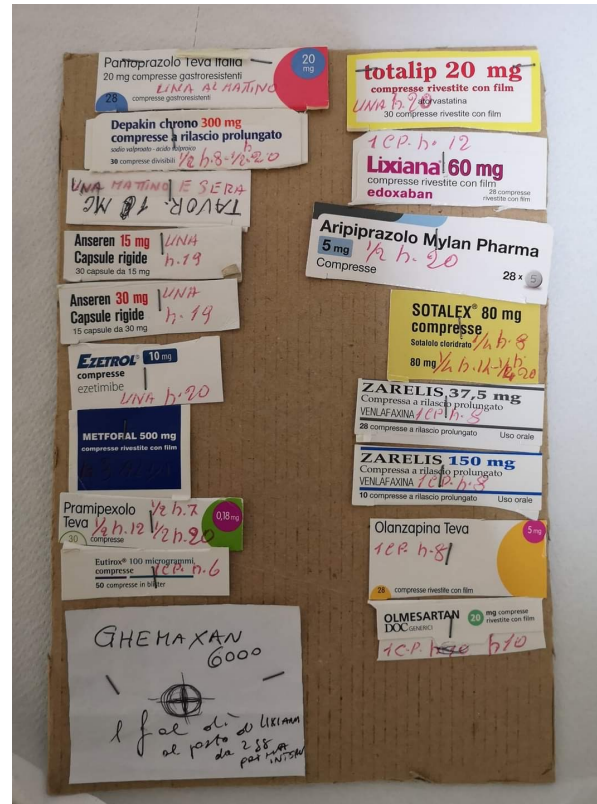 Pantoprazolo Teva Italia
20 mg compresse gastroresistenti
20 mg
UNA AL MATTINO
28 compresse gastroresistenti
Depakin chrono 300 mg
compresse a rilascio prolungato
sodio valproato - acido valproico
30 compresse divisibili 1/2 h.8-1/2 h.20
UNA MATTINO E SERA
TAVOR. 1 MG
Anseren 15 mg UNA
Capsule rigide h.19
30 capsule da 15 mg
Anseren 30 mg UNA
Capsule rigide h.19
15 capsule da 30 mg
EZETROL® 10 mg
compresse
ezetimibe
UNA h.20
METFORAL 500 mg
compresse rivestite con film
Pramipexolo 1/2 h.7
Teva 1/2 h.12 1/2 h.20
0,18 mg
30 compresse
Eutirox® 100 microgrammi,
compresse 1CP. h.6
50 compresse in blister
GHEMAXAN
6000
1 f al dì
al posto di LIXIANA
totalip 20 mg
compresse rivestite con film
UNA h.20
atorvastatina
30 compresse rivestite con film
1 CP. h. 12
Lixiana 60 mg
compresse rivestite con film
edoxaban
28 compresse
rivestite con film
Aripiprazolo Mylan Pharma
5 mg 1/2 h. 20
Compresse
28 x 5
SOTALEX® 80 mg
compresse
Sotalolo cloridrato 1/4 h.8
80 mg 1/4 h.14-1/4 h.20
ZARELIS 37,5 mg
Compressa a rilascio prolungato
VENLAFAXINA 1CP. h.8
28 compresse a rilascio prolungato Uso orale
ZARELIS 150 mg
Compressa a rilascio prolungato
VENLAFAXINA 1CP. h.8
10 compresse a rilascio prolungato Uso orale
Olanzapina Teva
5 mg
1CP. h.8
28 compresse rivestite con film
OLMESARTAN 20 mg compresse
rivestite con film
DOC GENERICI
1 C.P. h10